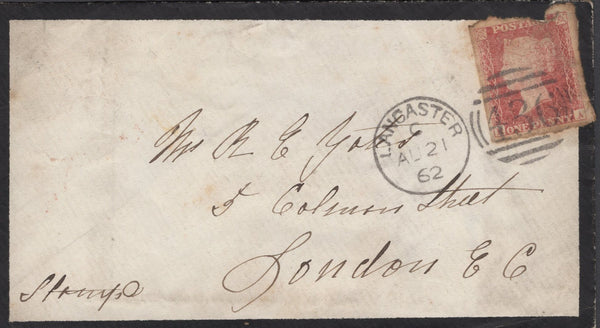 POSTAGE
ONE PENNY
LANCASTER
C
AU 21
62
Mr R E Yates
5 Colman Street
London E C
Stamps